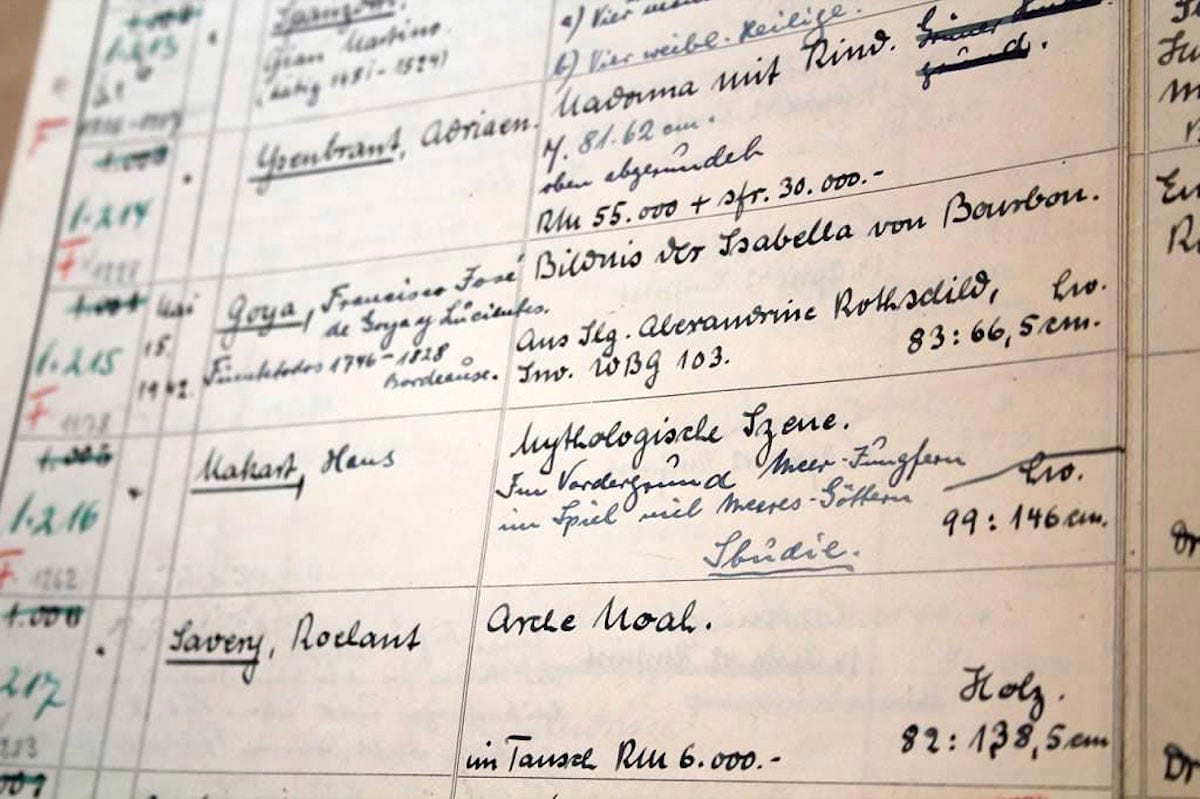 1.213
Gian Martino.
(tätig 1481-1524)
a) Vier
b) Vier weibl. Heilige.
1.214
F
Ysenbrant, Adriaen.
Madonna mit Kind.
H. 81.62 cm.
oben abgerundet
RM 55.000 + sfr. 30.000.-
1.215
F
Mai
15.
1942.
Goya, Francisco José
de Goya y Lucientes.
Fuentetodos 1746-1828
Bordeaux.
Bildnis der Isabella von Bourbon.
Aus Slg. Alexandrine Rothschild, Lw.
Inv. WBG 103. 83:66,5 cm.
1.216
F
Makart, Hans
Mythologische Szene.
Im Vordergrund Meer-Jungfern
im Spiel mit Meeres-Göttern
Lw.
99:146 cm.
Studie.
1.006
217
Savery, Roelant
Arche Noah.
Holz.
82:138,5 cm
im Tausch RM 6.000.-